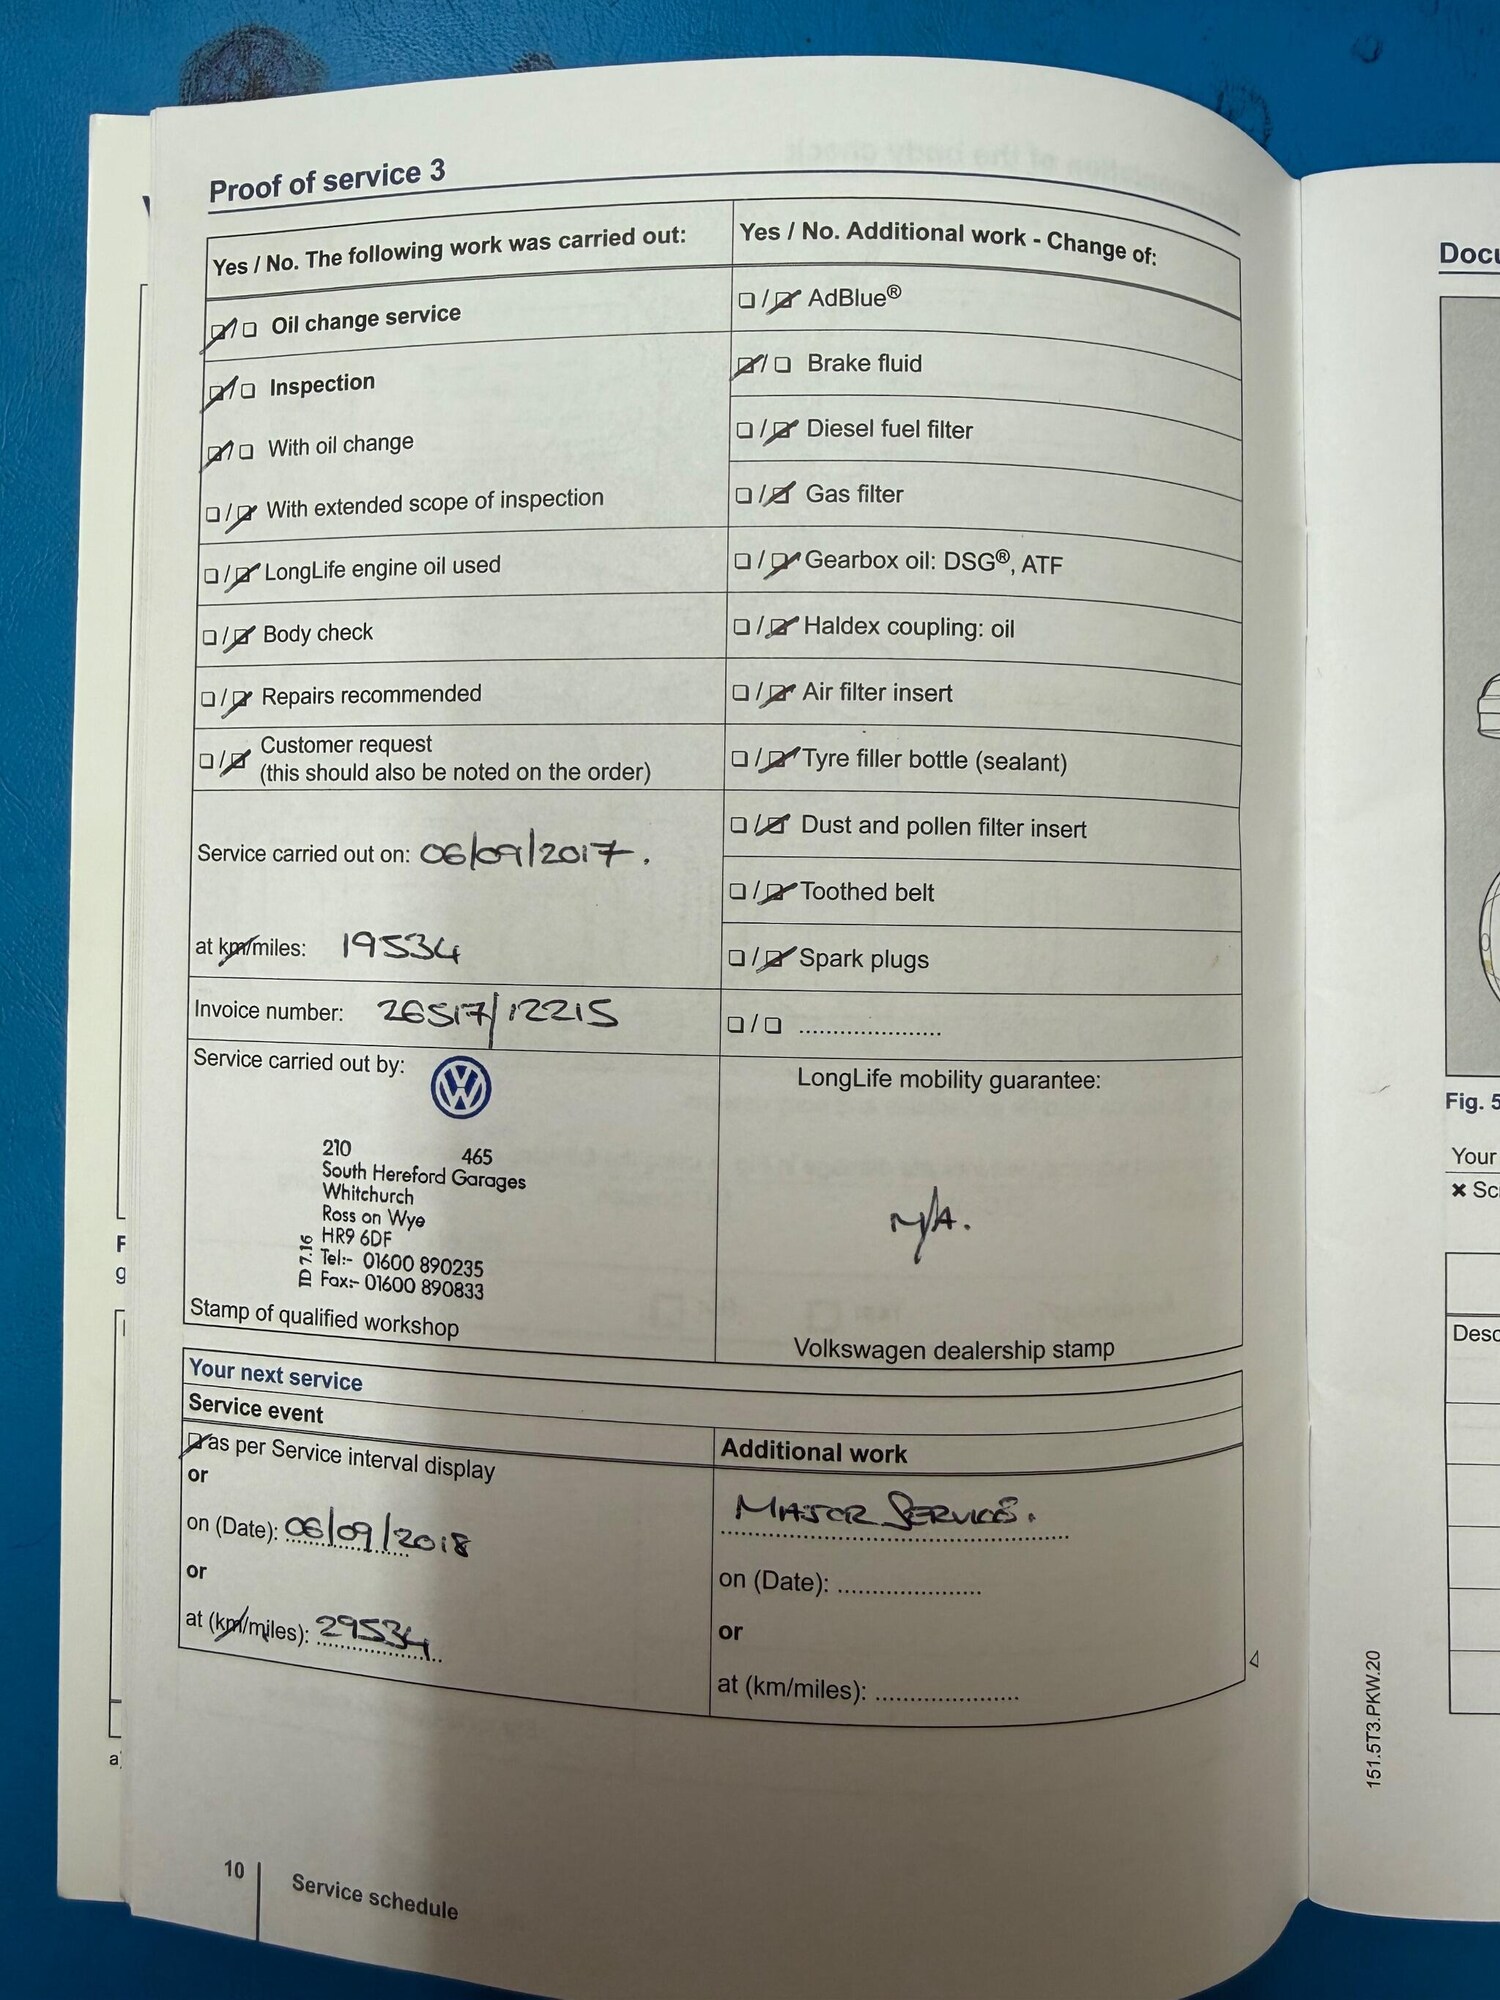 Proof of service 3
Yes / No. The following work was carried out:
☑/☐ Oil change service
☑/☐ Inspection
☑/☐ With oil change
☐/☑ With extended scope of inspection
☐/☑ LongLife engine oil used
☐/☑ Body check
☐/☑ Repairs recommended
☐/☑ Customer request
(this should also be noted on the order)
Service carried out on: 06/09/2017.
at km/miles: 19534
Invoice number: 26517/12215
Service carried out by:
VW
210 465
South Hereford Garages
Whitchurch
Ross on Wye
HR9 6DF
Tel:- 01600 890235
Fax:- 01600 890833
ID 7.16
Stamp of qualified workshop
Yes / No. Additional work - Change of:
☐/☑ AdBlue®
☑/☐ Brake fluid
☐/☑ Diesel fuel filter
☐/☑ Gas filter
☐/☑ Gearbox oil: DSG®, ATF
☐/☑ Haldex coupling: oil
☐/☑ Air filter insert
☐/☑ Tyre filler bottle (sealant)
☐/☑ Dust and pollen filter insert
☐/☑ Toothed belt
☐/☑ Spark plugs
☐/☐ .....................
LongLife mobility guarantee:
N/A.
Volkswagen dealership stamp
Your next service
Service event
☑ as per Service interval display
or
on (Date): 06/09/2018
or
at (km/miles): 29534
Additional work
MAJOR SERVICE.
on (Date): .....................
or
at (km/miles): .....................
10
Service schedule
Fig. 5
Your
151.5T3.PKW.20